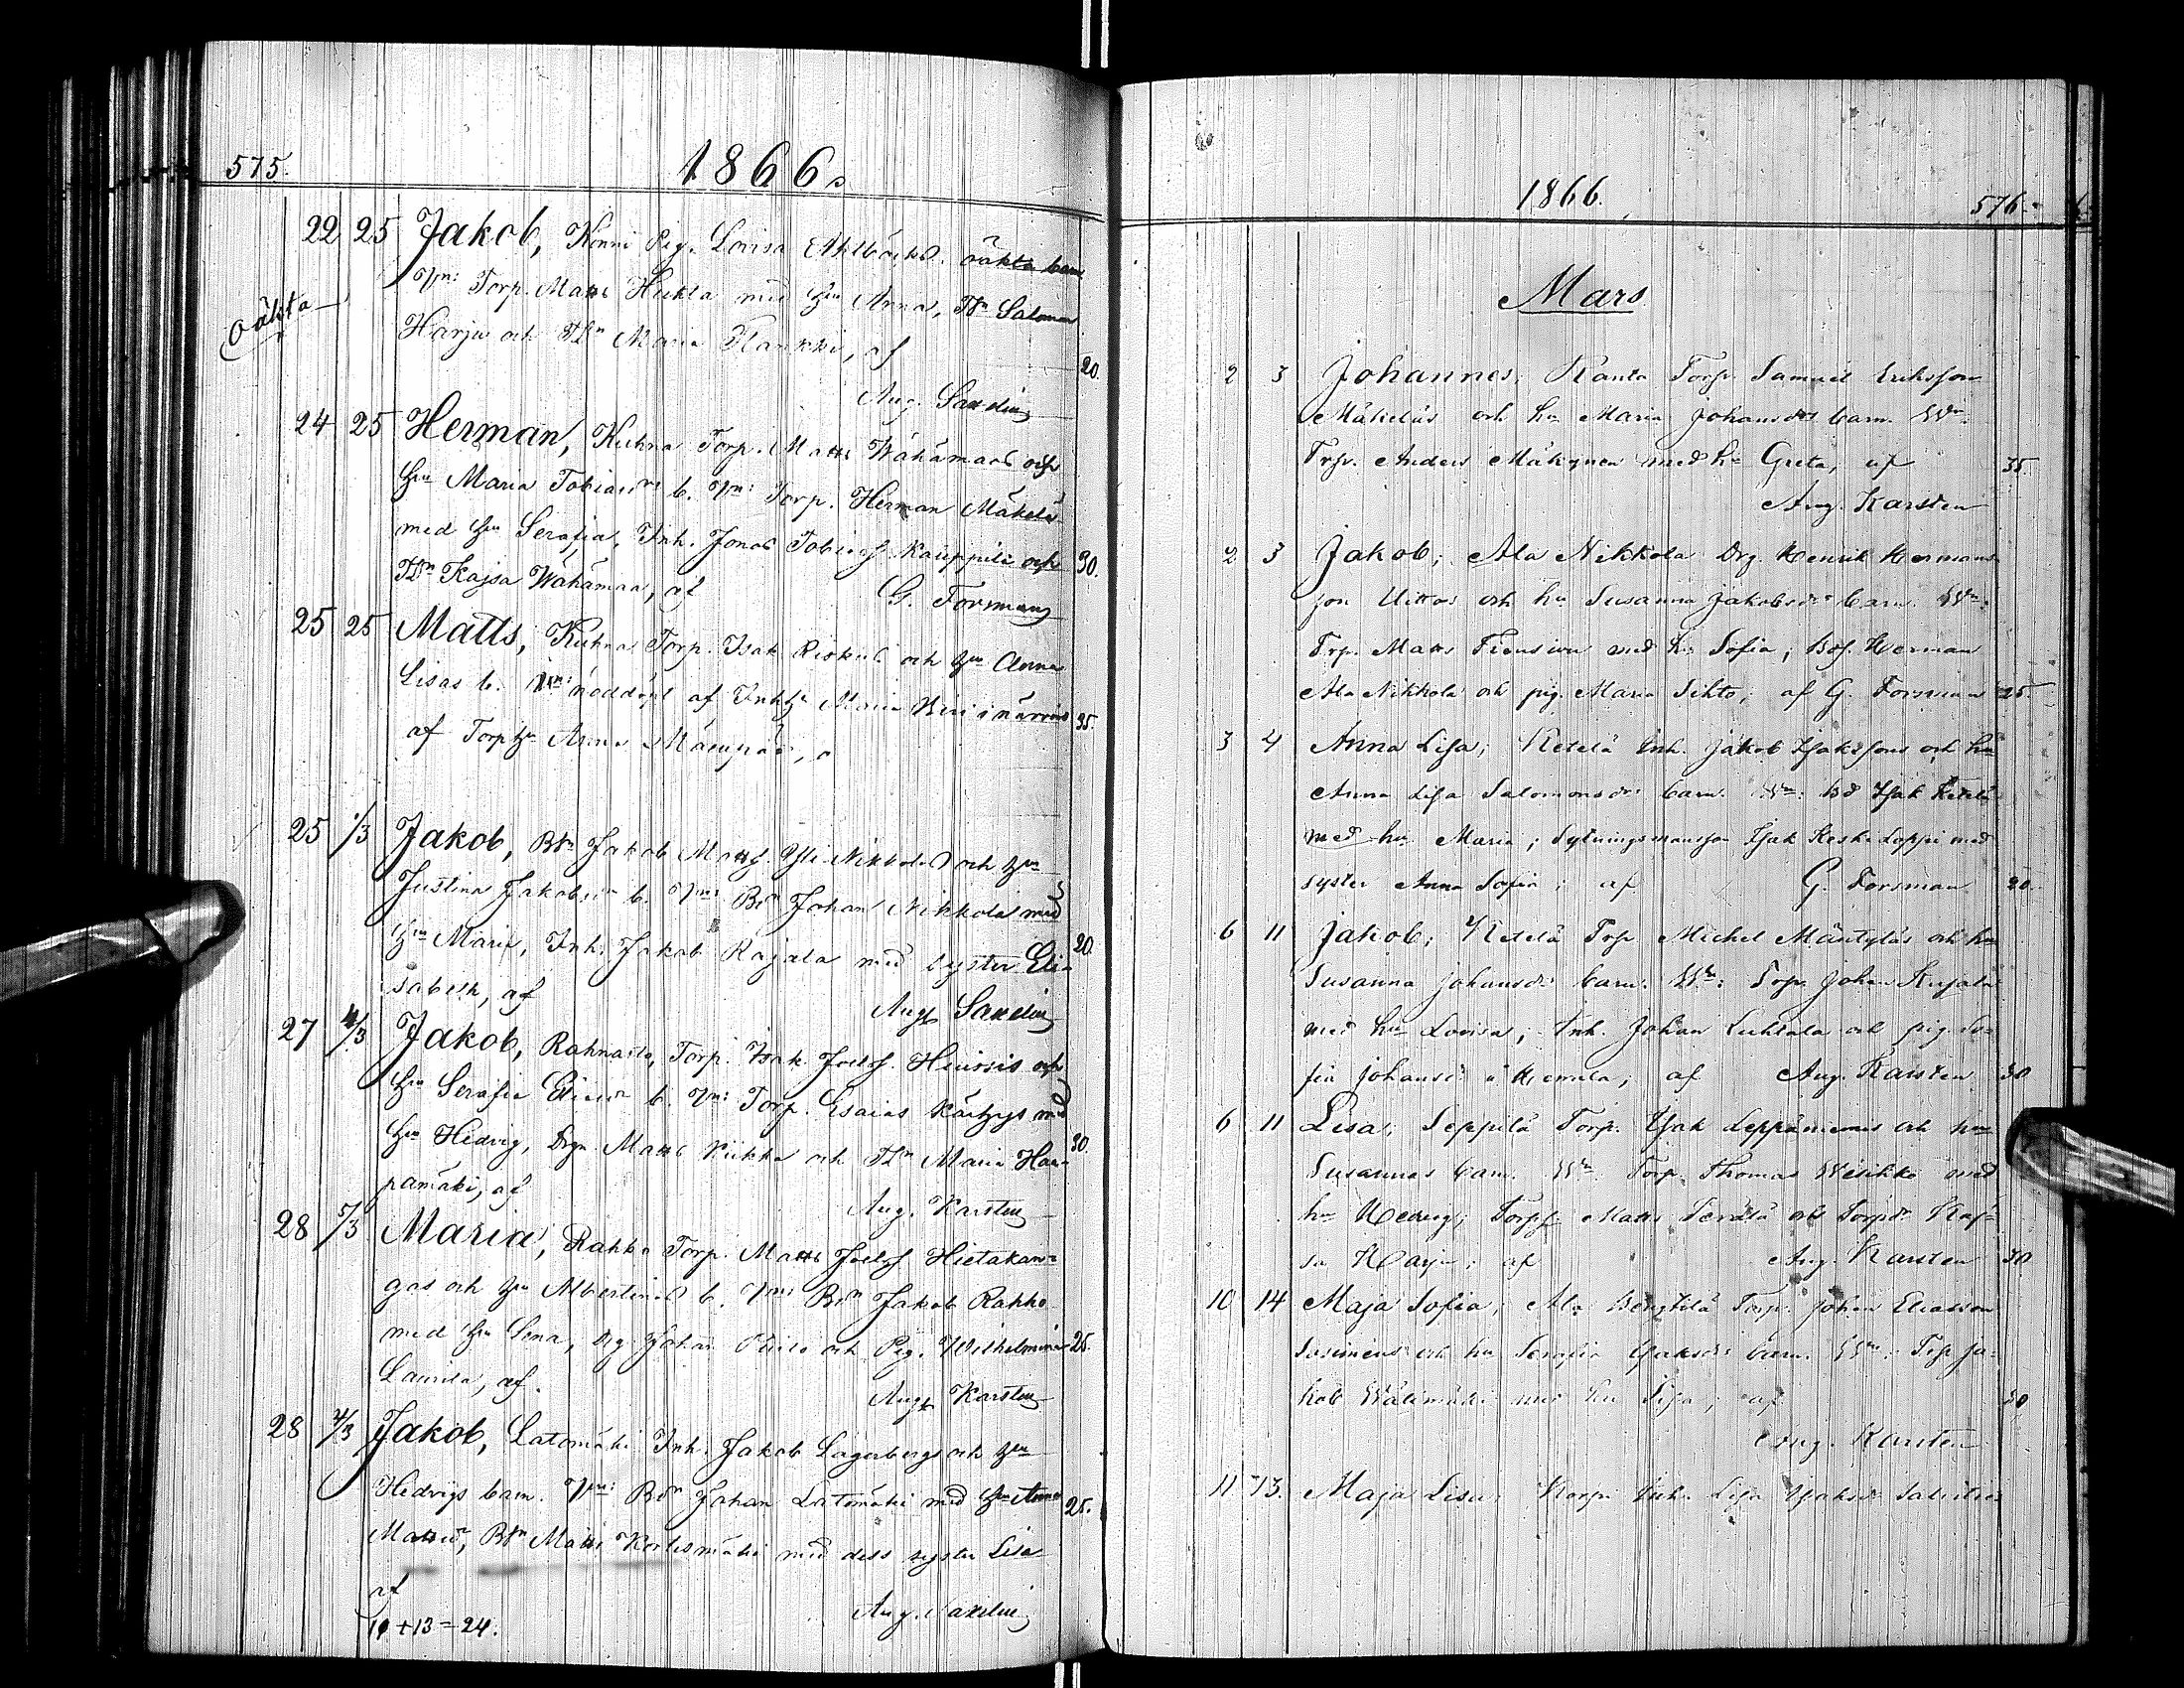 575.
1866.
22 25 Jakob, Könni Pig. Lovisa Ahlbäcks. oäkta barn
Oäkta
Vn: Torp. Matts Huhta med hu Anna, Dr Salomon
Harju och Dr Maria Flankki, af
20.
Aug. Saxelin
24 25 Herman, Kuhna Torp. Matts Wähämaas och
hu Maria Tobiasdrs b. Vn: Torp. Herman Mäkelä
med hu Serafia, Inh. Jonas Tobiass. Kauppila och 30.
Dr Kajsa Wähämaa, af G. Forsman
25 25 Matts, Kuhna Torp. Isak Riskus och hu Anna
Lisas b. nöddöpt af Inh hu Maria i närvaro 35.
af Torp hu Anna
25 1/3 Jakob, Bdn Jakob Mattss. Yli-Nikkola och hu
Justina Jakobsdr b. Vn: Bdn Johan Nikkola med
hu Maria, Inh. Jakob Rajala med syster Eli- 20.
sabeth, af Aug. Saxelin
27 4/3 Jakob, Rahnasto, Torp. Isak Joelss. och
hu Serafia b. Vn: Torp. Esaias med
hu Hedvig, Drg. Matts och Dr Maria Haa- 30.
pamäki, af
Aug. Karsten
28 5/3 Maria, Rahko Torp. Matts Joelss. Hietakan-
gas och hu Albertinas b. Vn: Bdn Jakob Rahko
med hu Lena, Drg Johan och Pig. Wilhelmina 25.
Laurila, af.
Aug. Karsten
28 4/3 Jakob, Latomäki Inh. Jakob Lagerbergs och hu
Hedvigs barn. Vn: Bdn Johan Latomäki med hu Anna 25.
Mattsdr, Bdn Matts Kortesmäki med dess syster Lisa
af
Aug. Saxelin
11+13=24.
1866.
576.
Mars
2 3 Johannes; Ranta Torp. Samuel Eriksson
Mäkeläs och hu Maria Johansdrs barn. Wn:
Trp. Anders Mäkynen med hu Greta, af 35.
Aug. Karsten
2 3 Jakob; Ala Nikkola Drg. Henrik Hermans-
son Uittos och hu Susanna Jakobsdrs barn. Wn:
Trp. Matts med hu Sofia; Bds. Herman
Ala Nikkola och pig. Maria Sihto; af G. Forsman 25.
3 4 Anna Lisa; Ketelä Inh. Jakob Isakssons och hu
Anna Lisa Salomonsdrs barn. Wn: Bd Isak Ketelä
med hu Maria; Sytningsmansson Isak Keski Loppi med
syster Anna Sofia; af G. Forsman 20.
6 11 Jakob; Ketelä Trp. Michel Mäntyläs och hu
Susanna Johansdrs barn. Wn: Torp. Johan Kujala
med hu Lovisa; Inh. Johan Luhtala och pig. So-
fia Johansdr af Aug. Karsten 30
6 11 Lisa; Seppilä Torp. Isak Leppäniemis och hu
Susannas barn. Wn: Torp. Thomas Wesikko med
hu Hedvig; Torps. Matts och Torpdr Kaj-
sa Harju; af Aug. Karsten 30
10 14 Maja Sofia; Ala Torp. Johan Eliasson
och hu Serafia Isaksdrs barn. Wn: Trp. Ja-
kob Wälimäki med hu Lisa; af 30
Aug. Karsten
11 13. Maja Lisa; Korpi Inh. Lisa Isaksdr